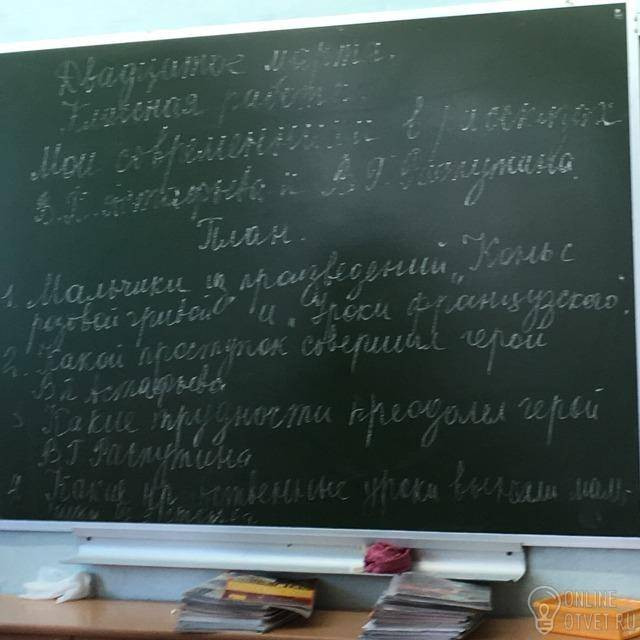 Двадцатое марта.
Классная работа
Мой современник в рассказах
В. П. Астафьева и В. Г. Распутина.
План.
1. Мальчики из произведений „Конь с
розовой гривой" и „Уроки французского".
2. Какой поступок совершил герой
В П Астафьева
3 Какие трудности преодолел герой
В Г Распутина
Какие нравственные уроки вынесли маль-
ONLINE
OTVET.RU